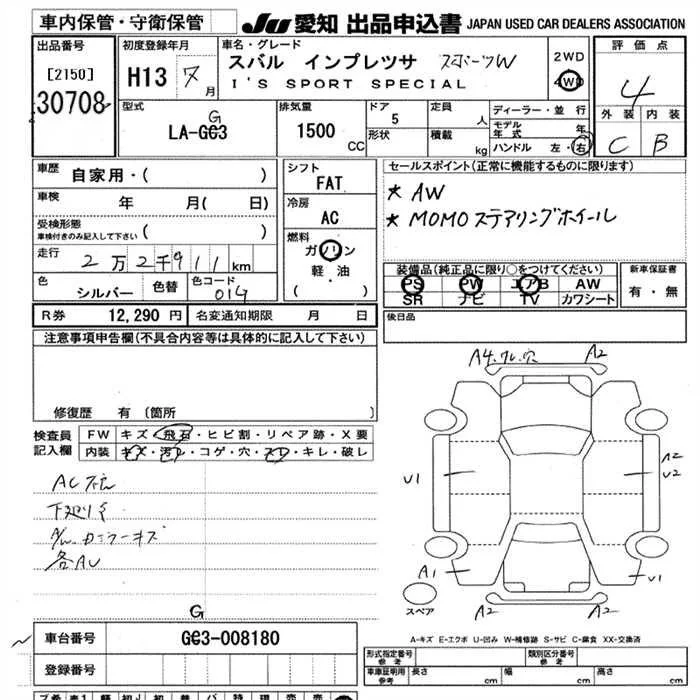 車内保管・守衛保管
JU 愛知 出品申込書 JAPAN USED CAR DEALERS ASSOCIATION
出品番号
[2150]
30708
初度登録年月
H13 7月
車名・グレード
スバル インプレツサ スポーツW
I'S SPORT SPECIAL
2WD
4WD
評価点
4
外装 内装
C B
型式
G
LA-GC3
排気量
1500 CC
ドア
5
形状
定員
人
積載
kg
ディーラー・並行
モデル年式 年
ハンドル 左・右
車歴
自家用・( )
車検
年 月( 日)
受検形態
車検付きのみ記入して下さい ( )
走行
2万2千911km
色
シルバー
色替
色コード
01G
シフト
FAT
冷房
AC
燃料
ガソリン
軽・油
( )
セールスポイント(正常に機能するものに限ります)
★ AW
★ MOMOステアリングホイール
装備品(純正品に限り○をつけてください)
PS PW エアB AW
SR ナビ TV カワシート
新車保証書
有・無
R券 12,290円 名変通知期限 月 日
後日品
注意事項申告欄(不具合内容等は具体的に記入して下さい)
修復歴 有〔箇所
検査員記入欄
FW キズ・飛石・ヒビ割・リペア跡・X要
内装 キズ・汚レ・コゲ・穴・スレ・キレ・破レ
AC不良
下廻りサ
各AU
A2
U1
A2
U2
A1
U1
A2
A2
スペア
A-キズ E-エクボ U-凹み W-補修跡 S-サビ C-腐食 XX-交換済
G
車台番号 GC3-008180
登録番号
形式指定番号 参考
類別区分番号 参考
車庫証明用 参考 長さ cm 幅 cm 高さ cm